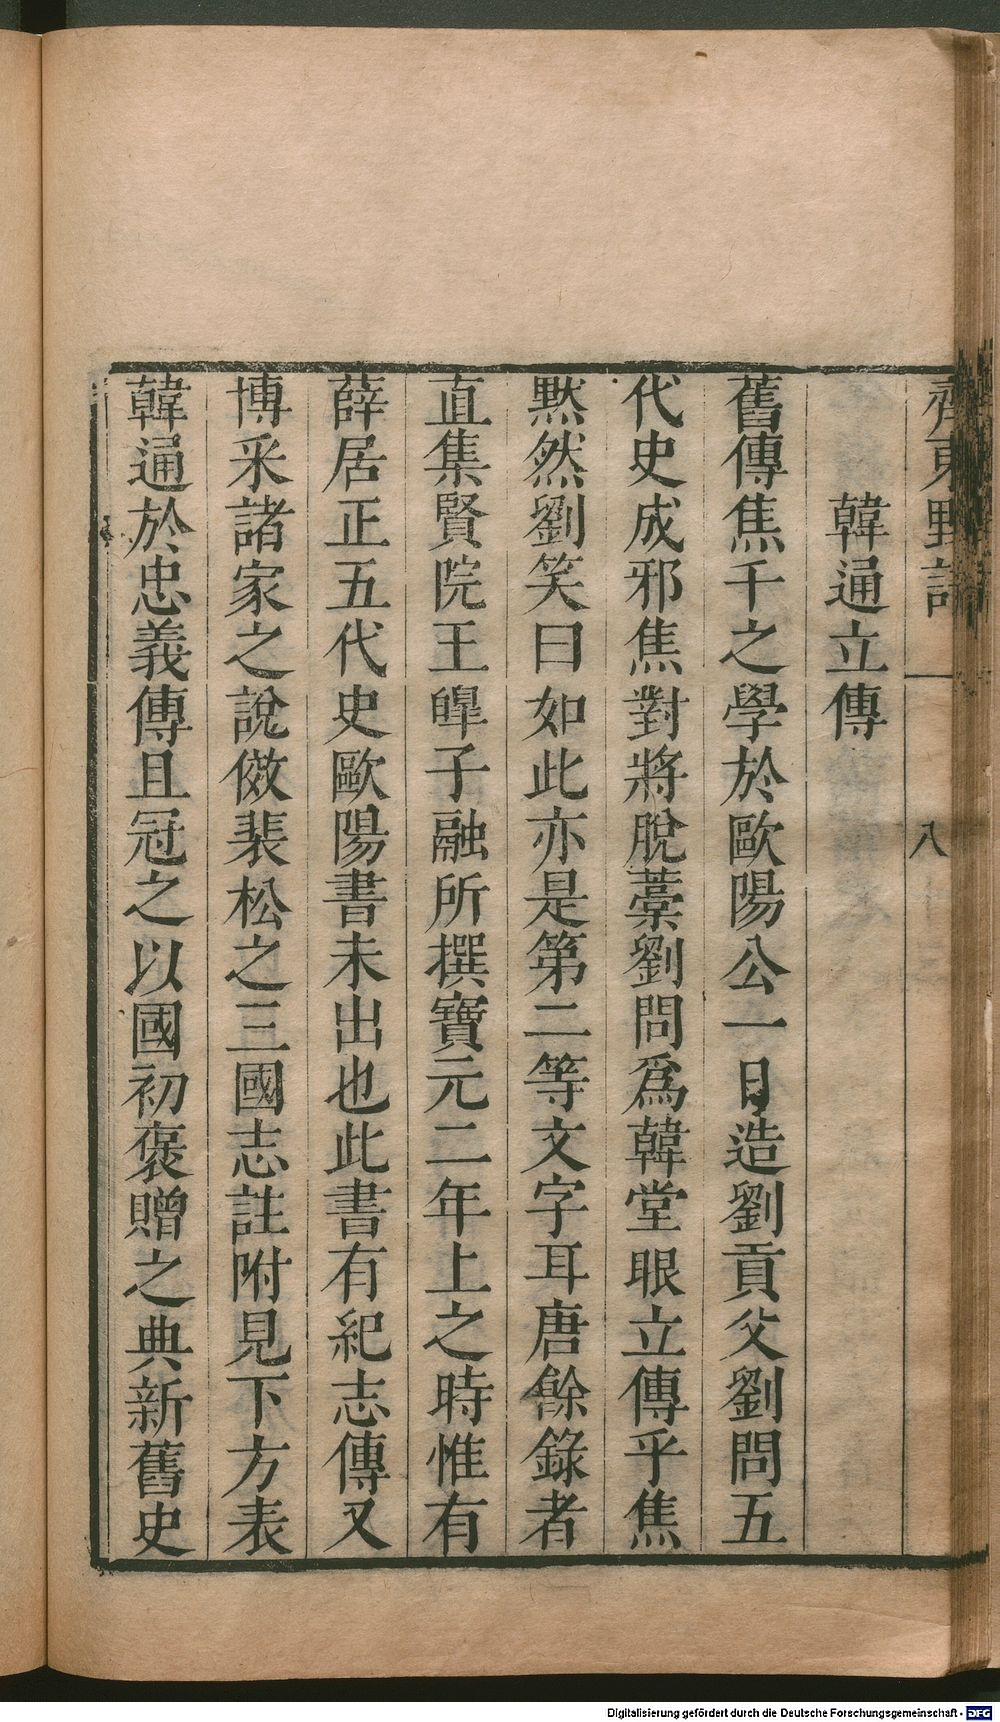 齊東野語
八
韓通立傳
舊傳焦千之學於歐陽公一日造劉貢父劉問五
代史成邪焦對將脫藁劉問爲韓堂眼立傳乎焦
黙然劉笑曰如此亦是第二等文字耳唐餘錄者
直集賢院王皡子融所撰寶元二年上之時惟有
薛居正五代史歐陽書未出也此書有紀志傳又
博采諸家之說倣裴松之三國志註附見下方表
韓通於忠義傳且冠之以國初褒贈之典新舊史
Digitalisierung gefördert durch die Deutsche Forschungsgemeinschaft - DFG